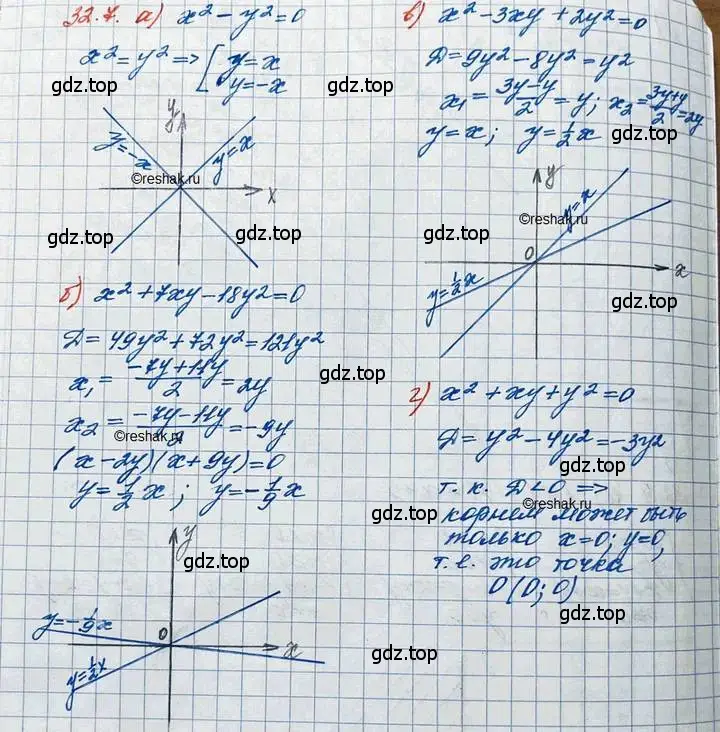 32.7. а) x² - y² = 0
x² = y² => [ y = x
y = -x
gdz.top
gdz.top
y
y = -x
y = x
©reshak.ru
x
gdz.top
gdz.top
б) x² + 7xy - 18y² = 0
D = 49y² + 72y² = 121y²
x₁ = (-7y + 11y)/2 = 2y
gdz.top
x₂ = (-7y - 11y)/2 = -9y
©reshak.ru
(x - 2y)(x + 9y) = 0
gdz.top
y = 1/2 x ; y = -1/9 x
y
gdz.top
y = -1/9 x
0
x
y = 1/2 x
gdz.top
в) x² - 3xy + 2y² = 0
D = 9y² - 8y² = y²
gdz.top
x₁ = (3y - y)/2 = y; x₂ = (3y + y)/2 = 2y
y = x; y = 1/2 x
gdz.top
y
y = x
©reshak.ru
gdz.top
0
x
y = 1/2 x
gdz.top
г) x² + xy + y² = 0
D = y² - 4y² = -3y²
т. к. D < 0 =>
©reshak.ru
gdz.top
корнем может быть
только x = 0; y = 0,
т. е. это точка
O (0; 0)
gdz.top
gdz.top